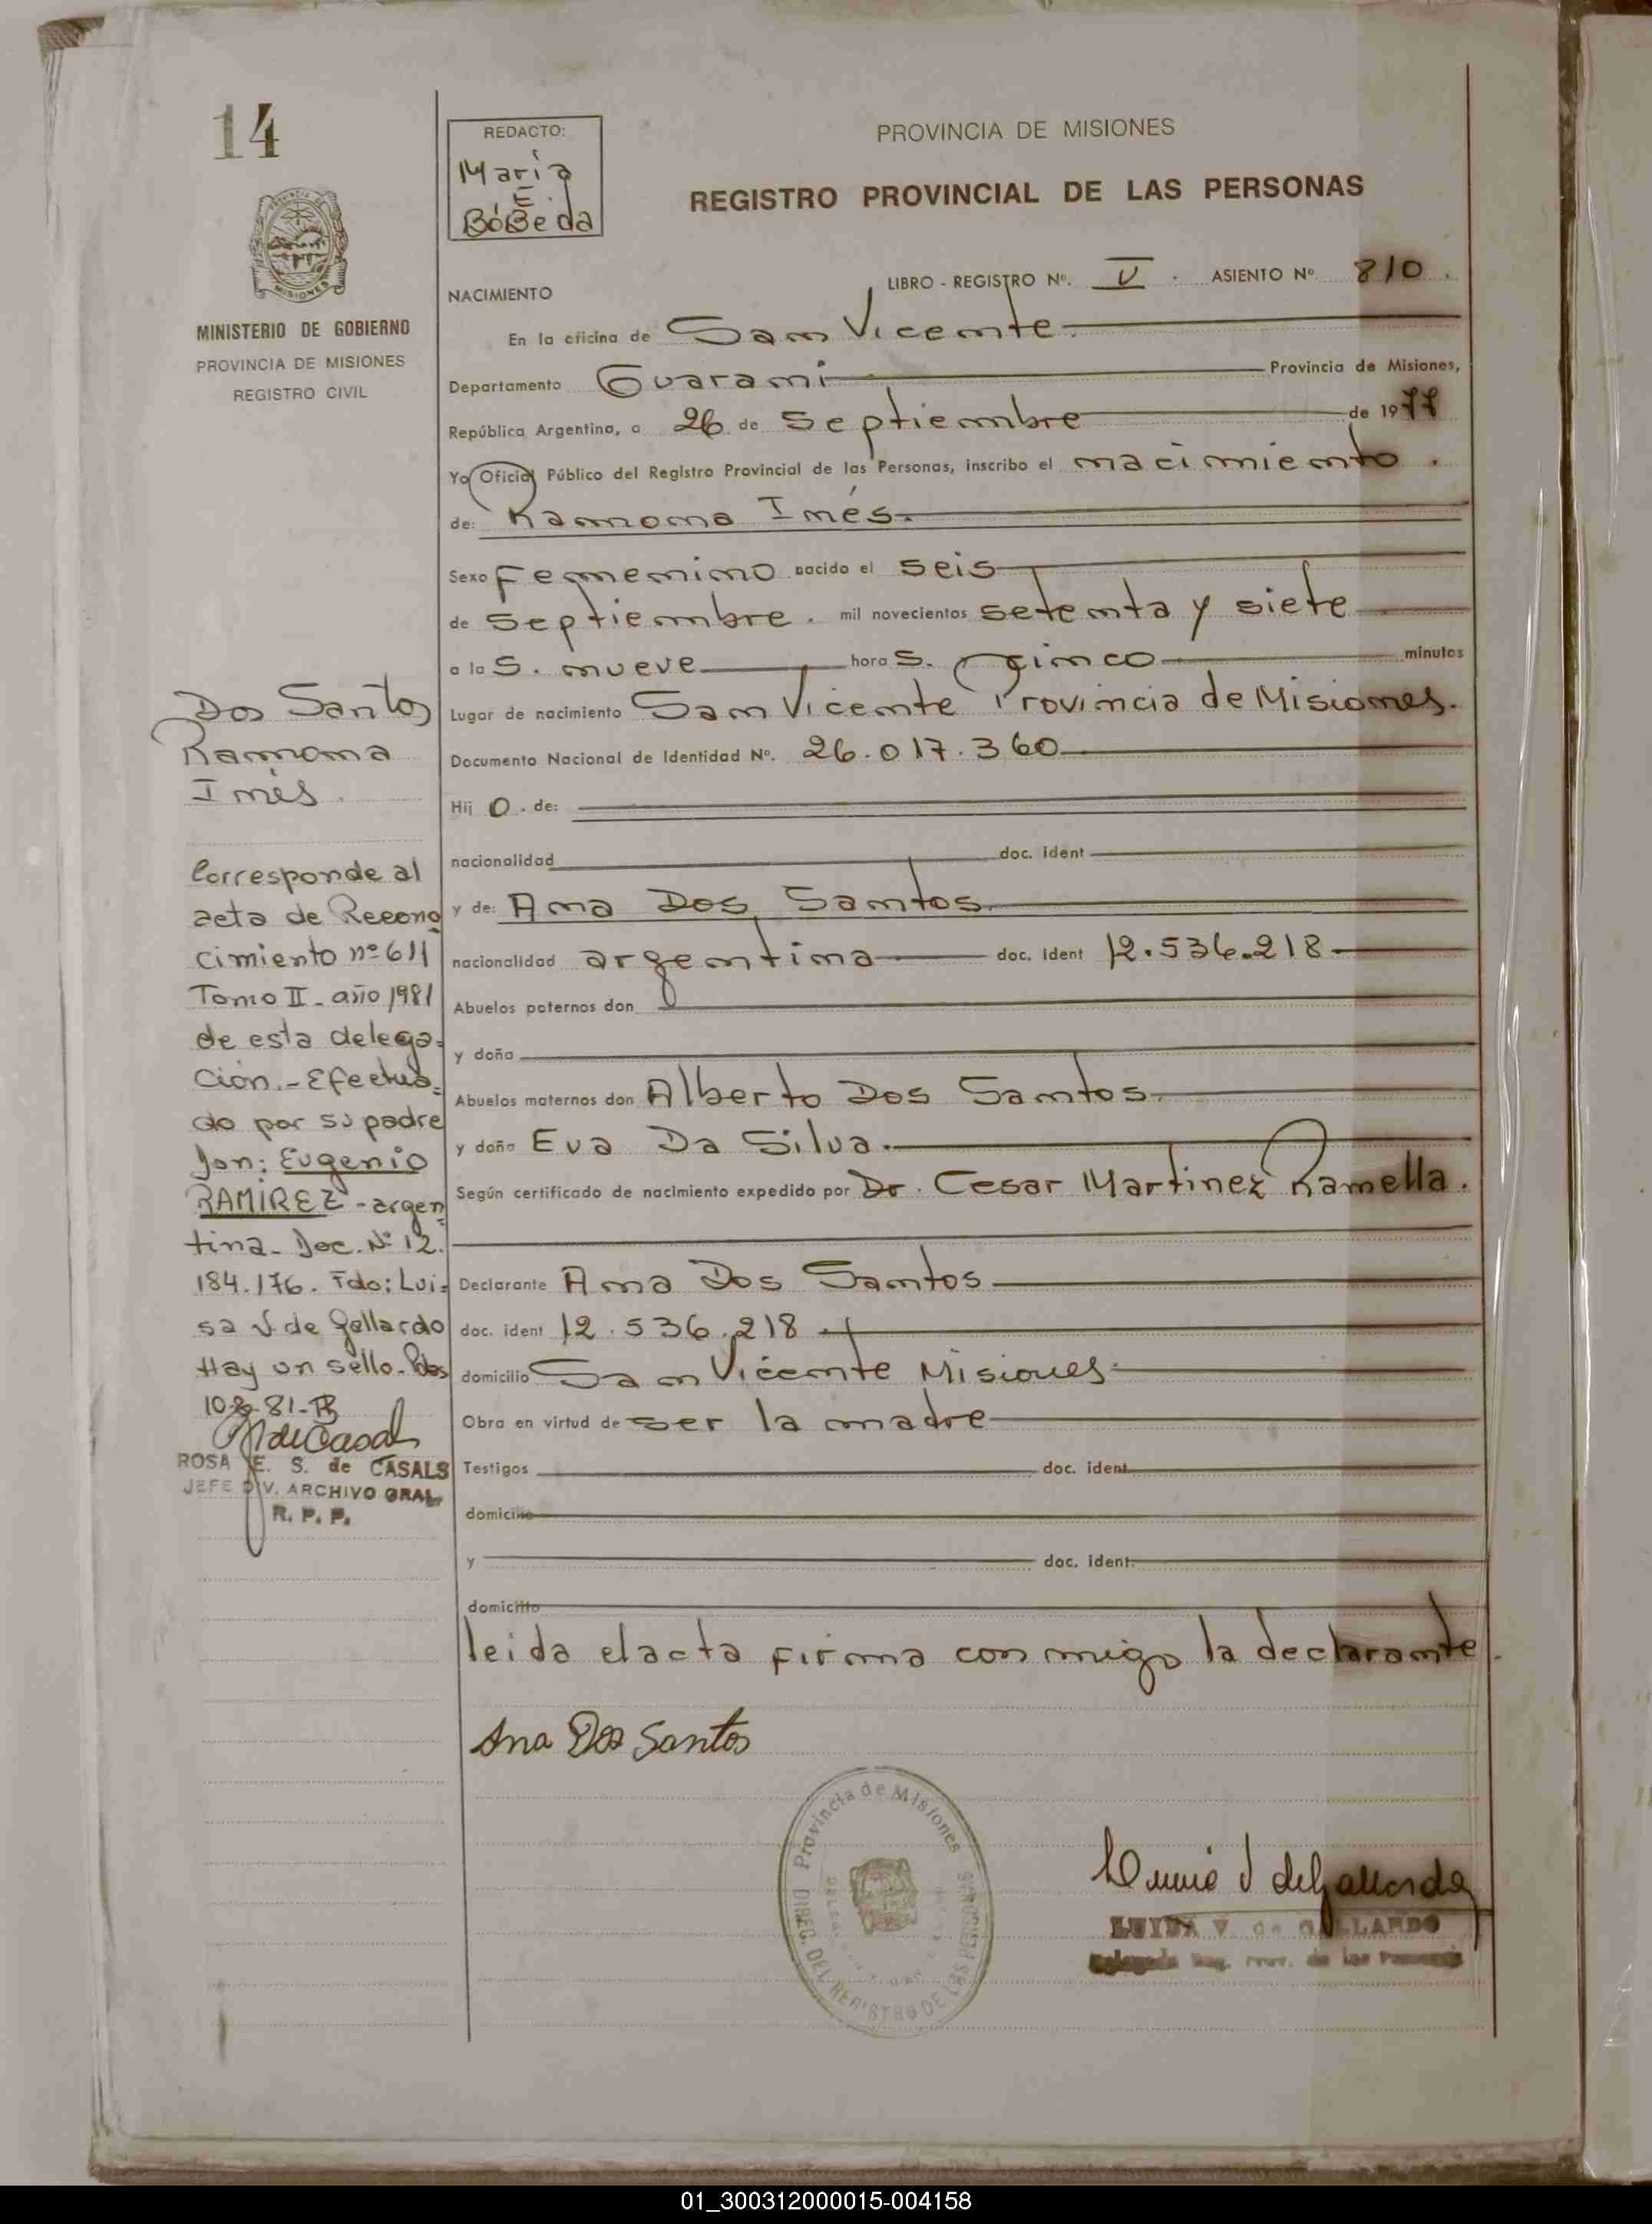 14
MISIONES
MINISTERIO DE GOBIERNO
PROVINCIA DE MISIONES
REGISTRO CIVIL
REDACTO:
María
E.
BóBeda
PROVINCIA DE MISIONES
REGISTRO PROVINCIAL DE LAS PERSONAS
NACIMIENTO
LIBRO - REGISTRO Nº. V . ASIENTO Nº 810 .
En la oficina de San Vicente.
Departamento Guarani Provincia de Misiones,
República Argentina, a 26 de Septiembre de 1977
Yo Oficial Público del Registro Provincial de las Personas, inscribo el nacimiento .
de: Ramona Inés.
Sexo Femenino nacido el seis
de Septiembre . mil novecientos setenta y siete
a la s. nueve hora s. cinco minutos
Lugar de nacimiento San Vicente Provincia de Misiones.
Documento Nacional de Identidad Nº. 26.017.360
Hij o . de:
nacionalidad doc. ident
y de: Ana Dos Santos.
nacionalidad argentina doc. ident 12.536.218
Abuelos paternos don
y doña
Abuelos maternos don Alberto Dos Santos.
y doña Eva Da Silva.
Según certificado de nacimiento expedido por Dr. Cesar Martinez Ramella.
Declarante Ana Dos Santos
doc. ident 12.536.218
domicilio San Vicente Misiones.
Obra en virtud de ser la madre
Testigos doc. ident.
domicilio
y doc. ident.
domicilio
leida el acta firma con migo la declarante.
Ana Dos Santos
Dos Santos
Ramona
Inés.
Corresponde al
acta de Recono
cimiento nº 611
Tomo II - año 1981
de esta delega=
ción.- Efectua=
do por su padre
Don: Eugenio
RAMÍREZ - argen
tina - Doc. Nº 12.
184.176. Fdo: Lui=
sa V. de Gallardo
Hay un sello.
ROSA E. S. de CASALS
JEFE DIV. ARCHIVO GRAL.
R. P. P.
Provincia de Misiones
DIREC. DEL REGISTRO DE LAS PERSONAS
LUISA V. de GALLARDO
Delegada Reg. Prov. de las Personas
01_300312000015-004158